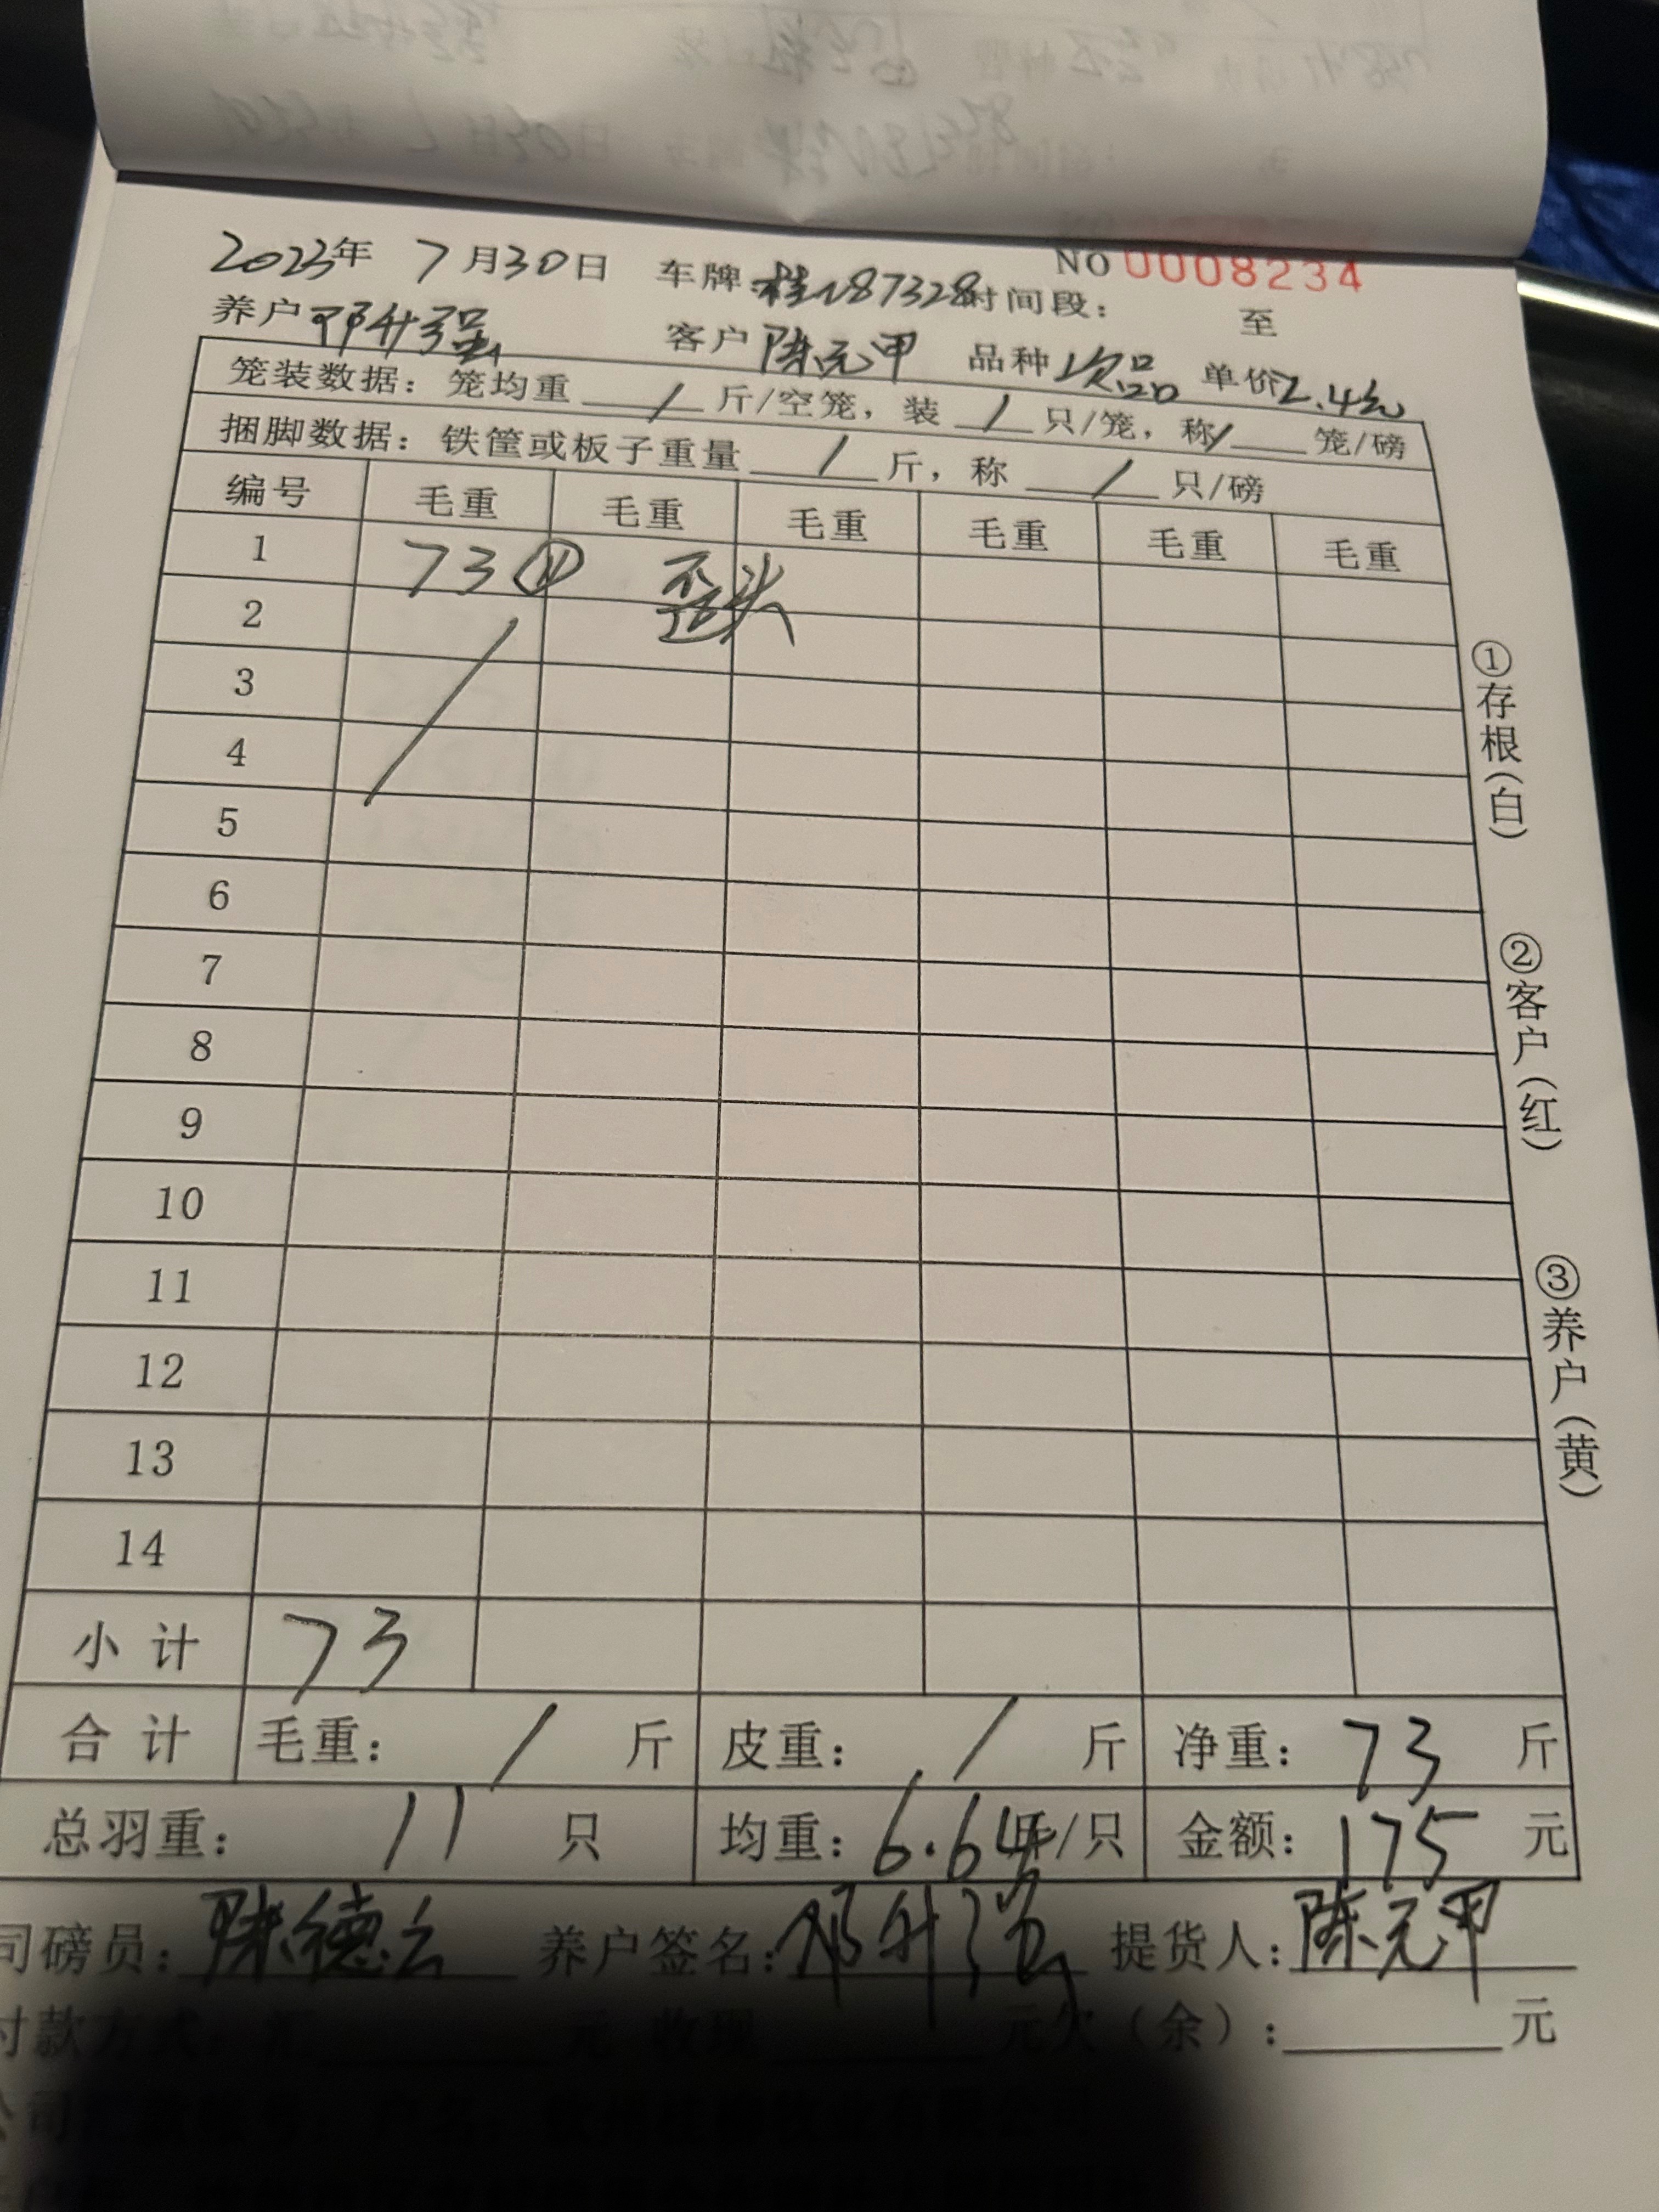 NO 0008234
2023年 7月30日 车牌:桂N87328 时间段: 至
养户 邓升强 客户 陈元甲 品种 次品 单价2.4元
笼装数据：笼均重 / 斤/空笼，装 / 只/笼，称 / 笼/磅
捆脚数据：铁筐或板子重量 / 斤，称 / 只/磅
编号 毛重 毛重 毛重 毛重 毛重 毛重
1 73 ⑪ 歪头
2
3
4
5
6
7
8
9
10
11
12
13
14
小计 73
合计 毛重： / 斤 皮重： / 斤 净重：73 斤
总羽重： 11 只 均重：6.64斤/只 金额：175 元
司磅员：陈德云 养户签名：邓升强 提货人：陈元甲
付款方式： 元 收现 元欠（余）： 元
①存根（白）
②客户（红）
③养户（黄）